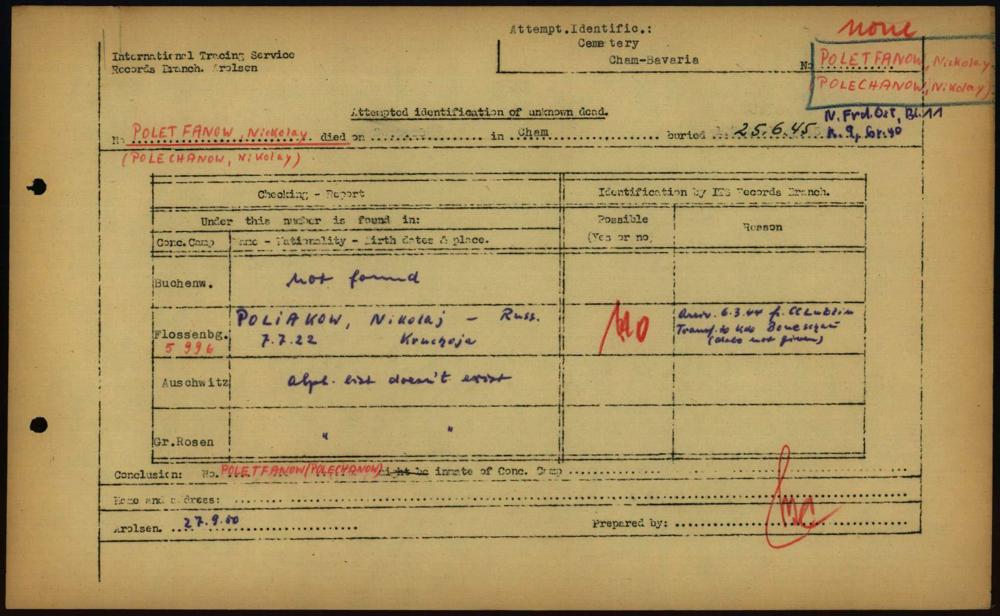 none
Attempt.Identific.:
Cemetery
Cham-Bavaria
International Tracing Service
Records Branch. Arolsen
No POLETFANOW, Nickolay.
(POLECHANOW, Nikolay)
N. Frdl. Ost, Bl. 11
R. 9, Gr. 40
Attempted identification of unknown dead.
No POLETFANOW, Nickolay. died on in Cham buried 25.6.45
(POLECHANOW, Nikolay)
Checking - Report
Identification by ITS Records Branch.
Under this number is found in:
Possible
(Yes or no)
Reason
Conc.Camp
Name - Nationality - Birth dates & place.
Buchenw.
not found
Flossenbg.
5 996
POLIAKOW, Nikolaj - Russ.
7.7.22
no
Arriv. 6.3.44 fr. CC Lublin
Transf. to Kdo
(date not given)
Auschwitz
alph. list doesn't exist
Gr.Rosen
" "
Conclusion: No. POLETFANOW (POLECHANOW) might be inmate of Conc. Camp
Name and address:
Arolsen. 27.9.50
Prepared by: